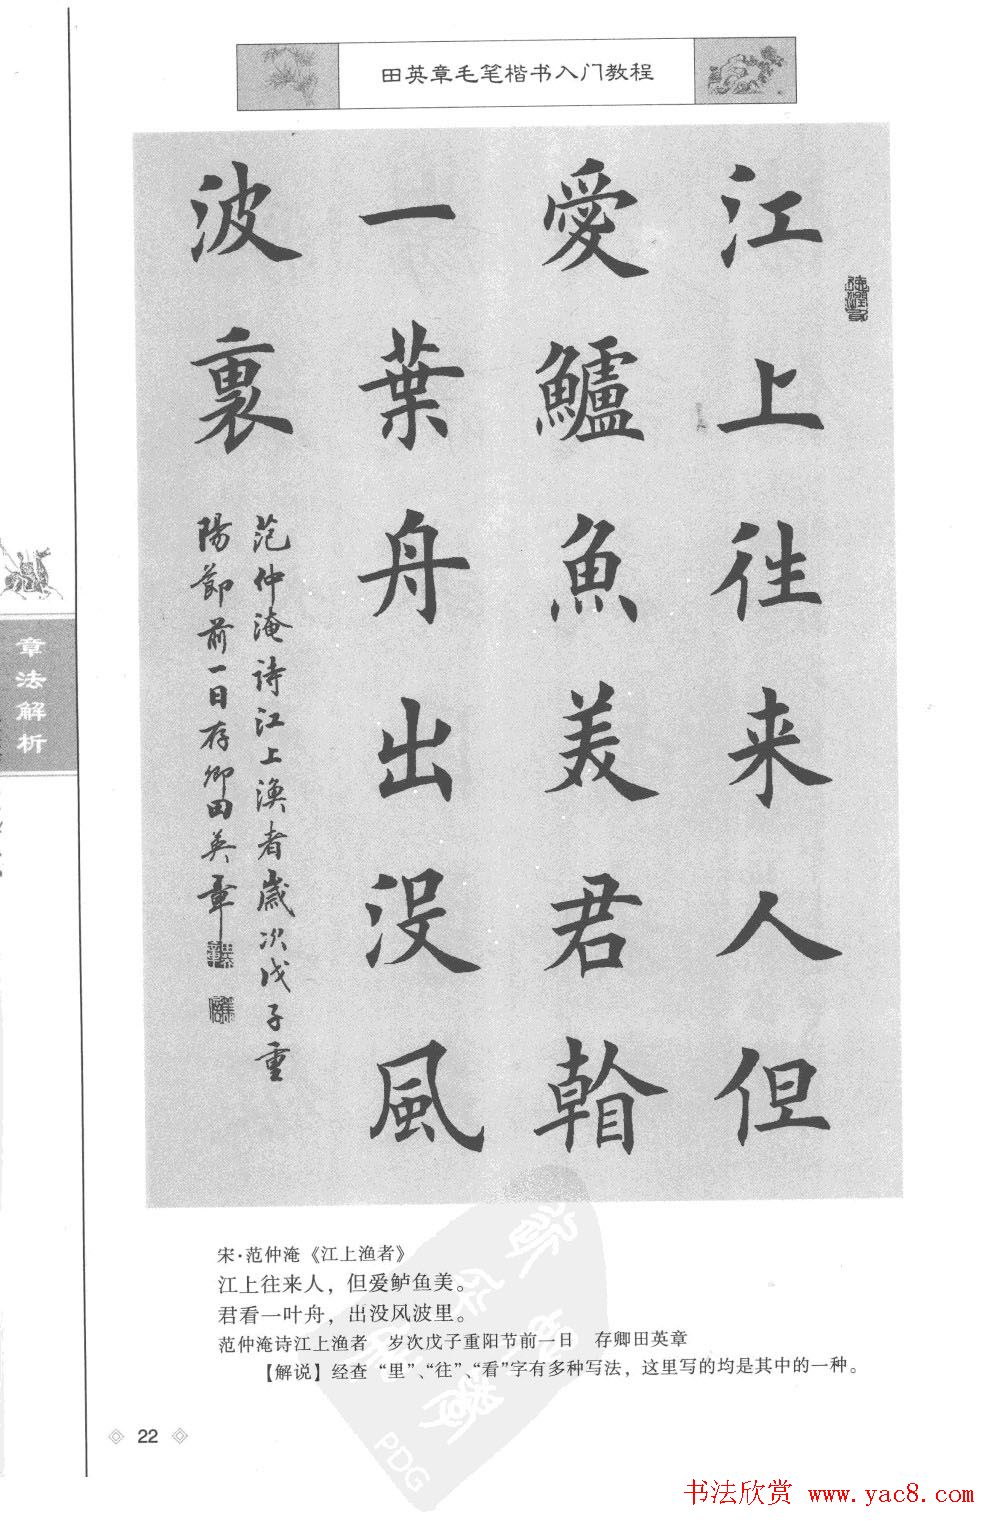 田英章毛笔楷书入门教程
江上往来人但
愛鱸魚美君䩞
一葉舟出没風
波裏
范仲淹诗江上渔者歲次戊子重
陽節前一日存卿田英章
章法解析
宋·范仲淹《江上渔者》
江上往来人，但爱鲈鱼美。
君看一叶舟，出没风波里。
范仲淹诗江上渔者　岁次戊子重阳节前一日　存卿田英章
【解说】经查“里”、“往”、“看”字有多种写法，这里写的均是其中的一种。
22
PDG
书法欣赏 www.yac8.com